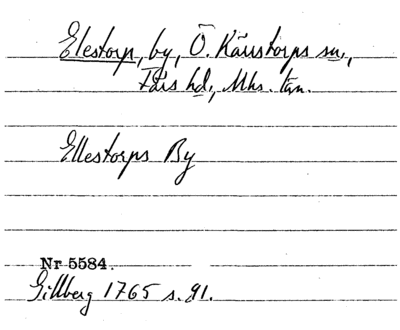 Elestorp, by, Ö. Kärrstorps sn,
Färs hd, Mhs. län.
Ellestorps By
Nr 5584.
Gillberg 1765 s. 91.